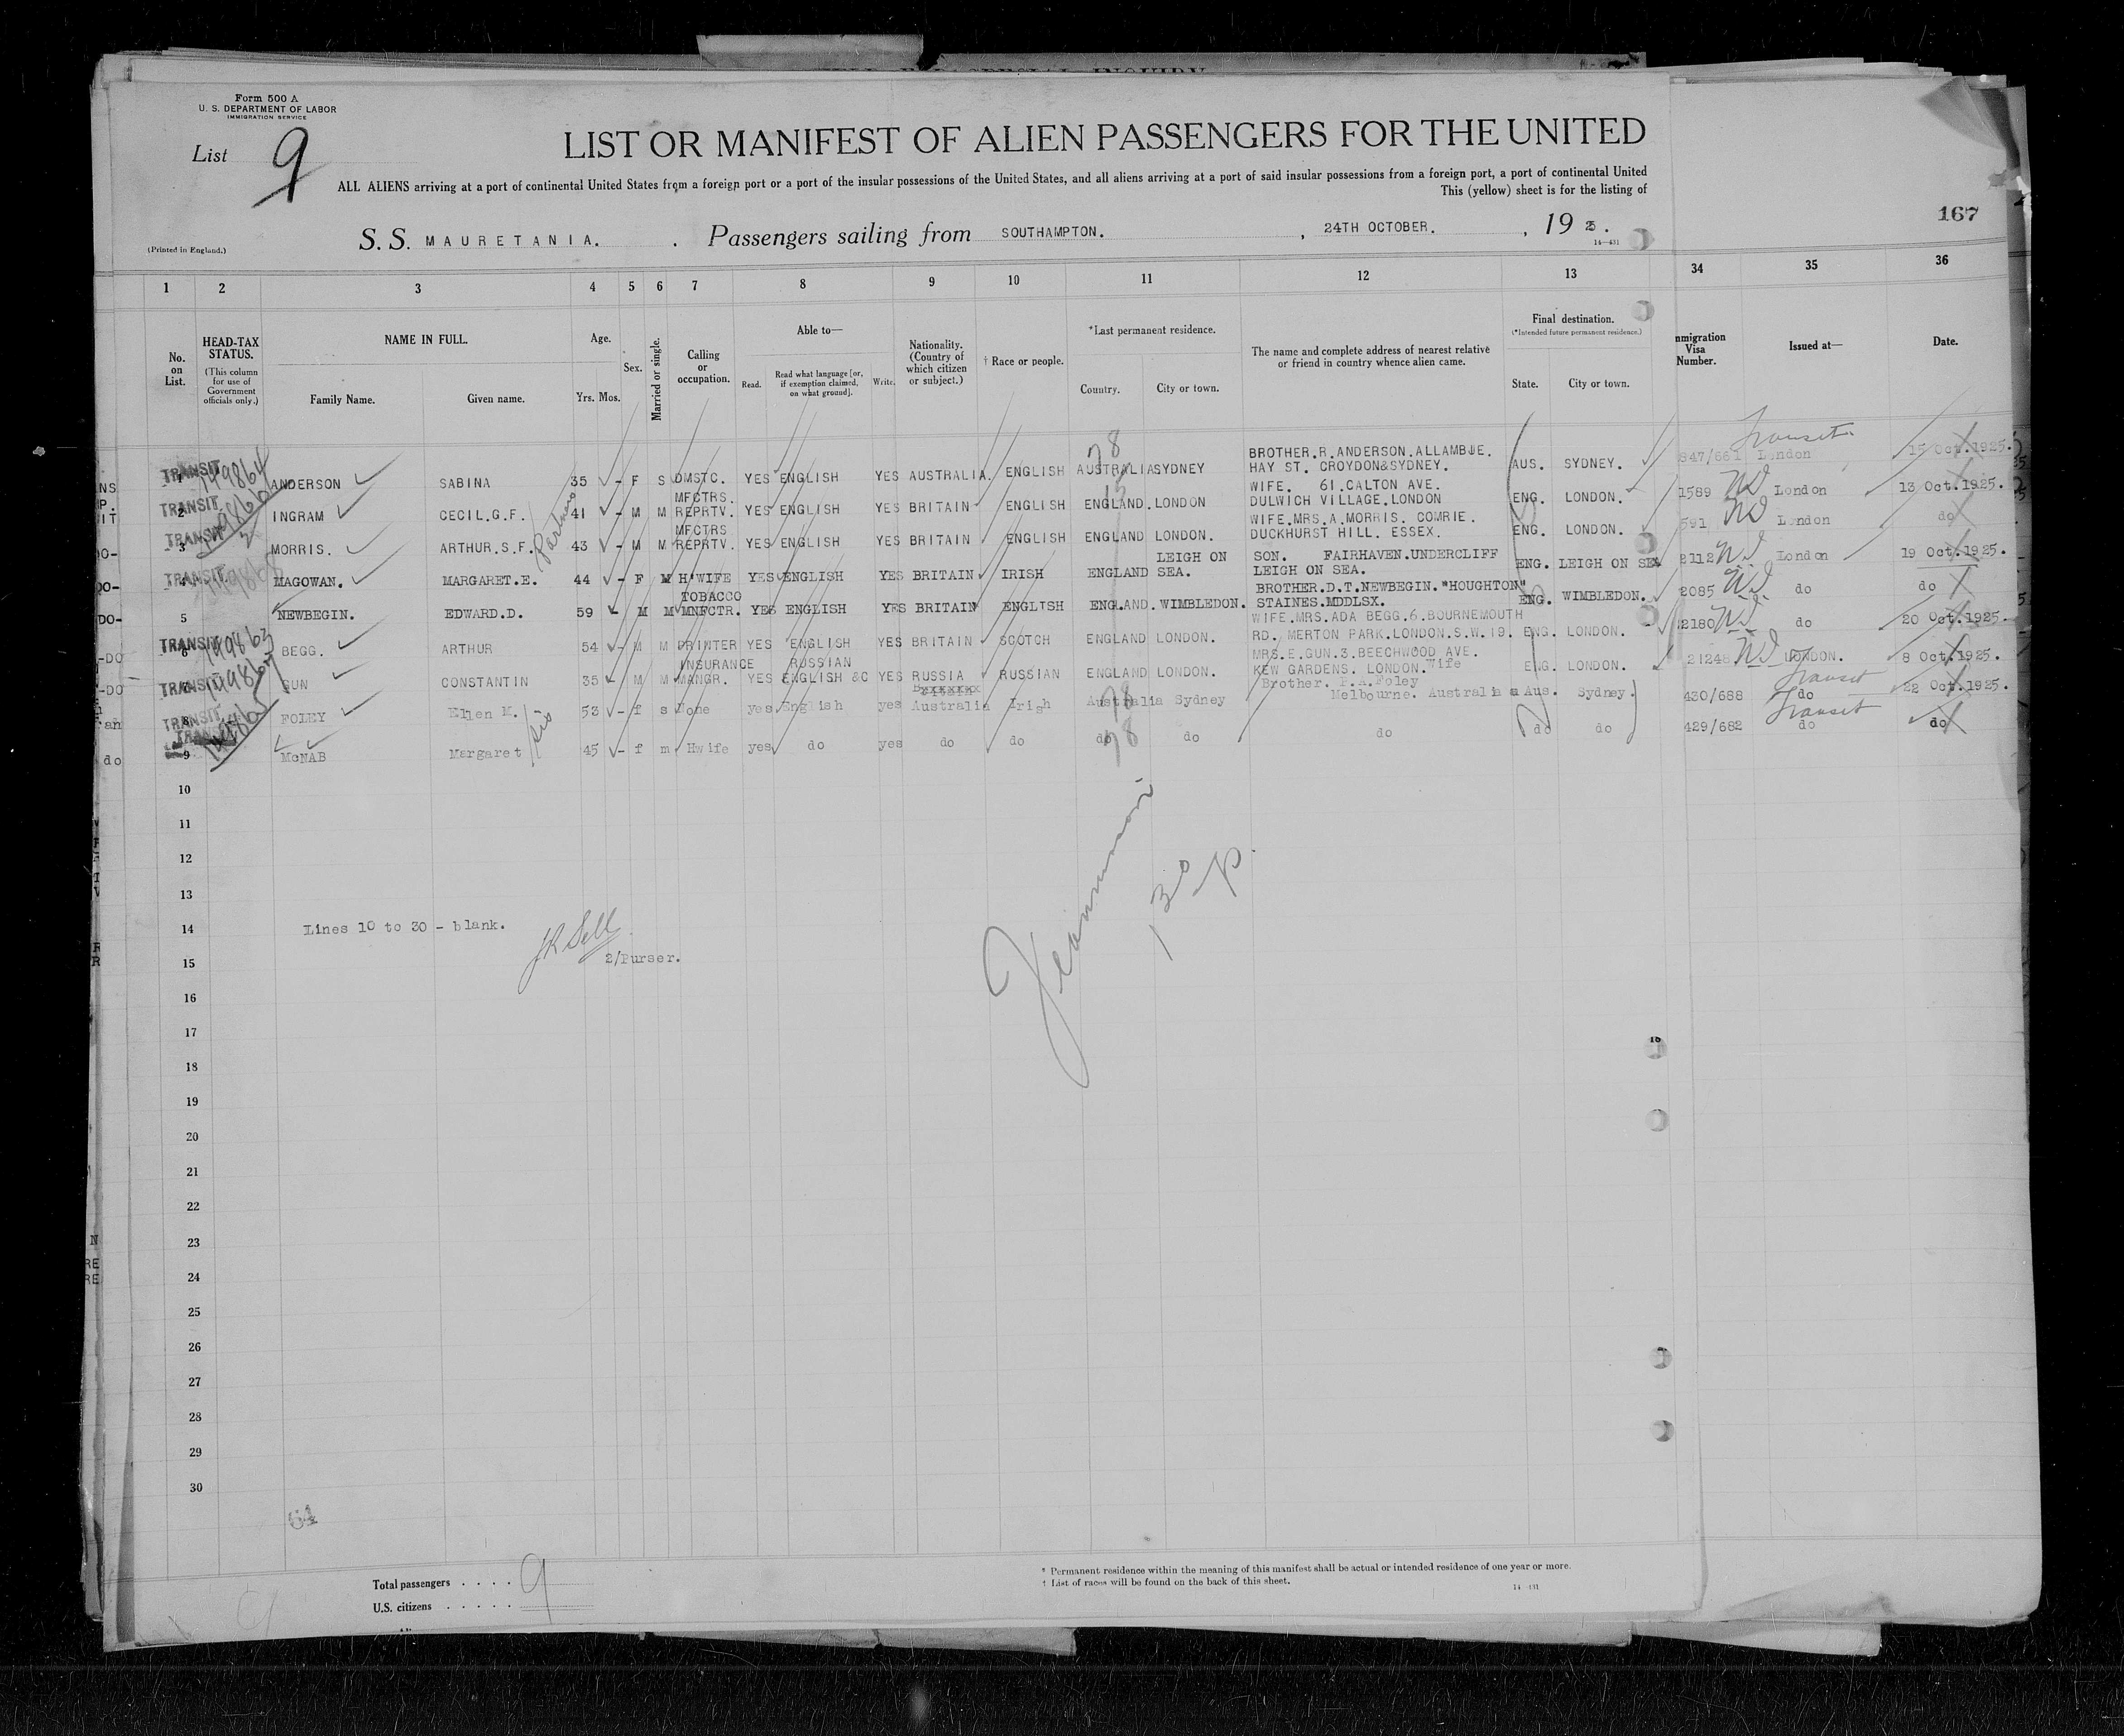 Form 500 A
U. S. DEPARTMENT OF LABOR
IMMIGRATION SERVICE
List 9
LIST OR MANIFEST OF ALIEN PASSENGERS FOR THE UNITED
ALL ALIENS arriving at a port of continental United States from a foreign port or a port of the insular possessions of the United States, and all aliens arriving at a port of said insular possessions from a foreign port, a port of continental United
This (yellow) sheet is for the listing of
167
(Printed in England.)
S. S. MAURETANIA. . Passengers sailing from SOUTHAMPTON. , 24TH OCTOBER. , 19 25.
14—431
1 2 3 4 5 6 7 8 9 10 11 12 13 34 35 36
No. on List.
HEAD-TAX STATUS.
(This column for use of Government officials only.)
NAME IN FULL.
Family Name. Given name.
Age.
Yrs. Mos.
Sex.
Married or single.
Calling or occupation.
Able to—
Read. Read what language [or, if exemption claimed, on what ground]. Write.
Nationality. (Country of which citizen or subject.)
† Race or people.
*Last permanent residence.
Country. City or town.
The name and complete address of nearest relative or friend in country whence alien came.
Final destination.
(*Intended future permanent residence.)
State. City or town.
mmigration Visa Number.
Issued at—
Date.
TRANSIT 1 149864 ANDERSON SABINA 35 - F S DMSTC. YES ENGLISH YES AUSTRALIA. ENGLISH AUSTRALIA SYDNEY BROTHER.R.ANDERSON.ALLAMBJE. HAY ST. CROYDON&SYDNEY. AUS. SYDNEY. 847/661 Transit London 15 Oct.1925.
TRANSIT 2 INGRAM CECIL.G.F. 41 - M M MFCTRS. REPRTV. YES ENGLISH YES BRITAIN ENGLISH ENGLAND. LONDON WIFE. 61.CALTON AVE. DULWICH VILLAGE.LONDON ENG. LONDON. 1589 London 13 Oct.1925.
TRANSIT 3 MORRIS. ARTHUR.S.F. Partners 43 - M M MFCTRS REPRTV. YES ENGLISH YES BRITAIN ENGLISH ENGLAND LONDON. WIFE.MRS.A.MORRIS. COMRIE. DUCKHURST HILL. ESSEX. ENG. LONDON. 591 London do
TRANSIT. 4 MAGOWAN. MARGARET.E. 44 - F M H'WIFE YES ENGLISH YES BRITAIN IRISH ENGLAND LEIGH ON SEA. SON. FAIRHAVEN.UNDERCLIFF LEIGH ON SEA. ENG. LEIGH ON SEA 2112 London 19 Oct.1925.
5 NEWBEGIN. EDWARD.D. 59 M M TOBACCO MNFCTR. YES ENGLISH YES BRITAIN ENGLISH ENGLAND. WIMBLEDON. BROTHER.D.T.NEWBEGIN."HOUGHTON" STAINES.MDDLSX. ENG. WIMBLEDON. 2085 do do
TRANSIT 6 149863 BEGG. ARTHUR 54 - M M PRINTER YES ENGLISH YES BRITAIN SCOTCH ENGLAND LONDON. WIFE.MRS.ADA BEGG.6.BOURNEMOUTH RD. MERTON PARK.LONDON.S.W.19. ENG. LONDON. 2180 do 20 Oct.1925.
TRANSIT 149867 GUN CONSTANTIN 35 M M INSURANCE MANGR. YES RUSSIAN ENGLISH &C YES RUSSIA RUSSIAN ENGLAND LONDON. MRS.E.GUN.3.BEECHWOOD AVE. KEW GARDENS. LONDON. Wife ENG. LONDON. 21248 LONDON. 8 Oct.1925.
TRANSIT 8 FOLEY Ellen M. 53 - f s None yes English yes Australia Irish Australia Sydney Brother. F.A.Foley Melbourne. Australia Aus. Sydney. 430/688 Transit do 22 Oct.1925.
9 McNAB Margaret sis 45 - f m Hwife yes do yes do do do do do do do 429/682 Transit do do
10
11
12
13
14 Lines 10 to 30 - blank.
15 2/Purser.
16
17
18
19
20
21
22
23
24
25
26
27
28
29
30
64
Total passengers . . . . 9
U.S. citizens . . . . .
* Permanent residence within the meaning of this manifest shall be actual or intended residence of one year or more.
† List of races will be found on the back of this sheet.
14—431